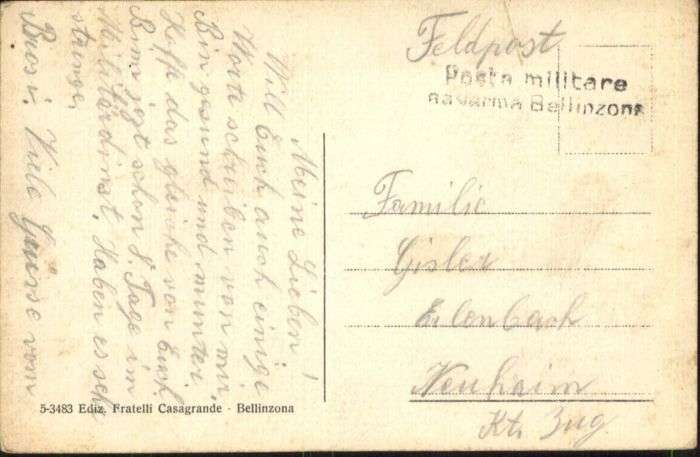 Feldpost
Posta militare
Bellinzona
Familie
Gisler
Erlenbach
Neuheim
Kt. Zug.
Meine Lieben!
Will Euch auch einige
Worte schreiben von mir.
Bin gesund und munter.
Hoffe das gleiche von Euch
Bim jezt schon 8 Tage im
Militärdinst. Haben es sch
strenge.
Viele Grüsse vom
5-3483 Ediz. Fratelli Casagrande - Bellinzona